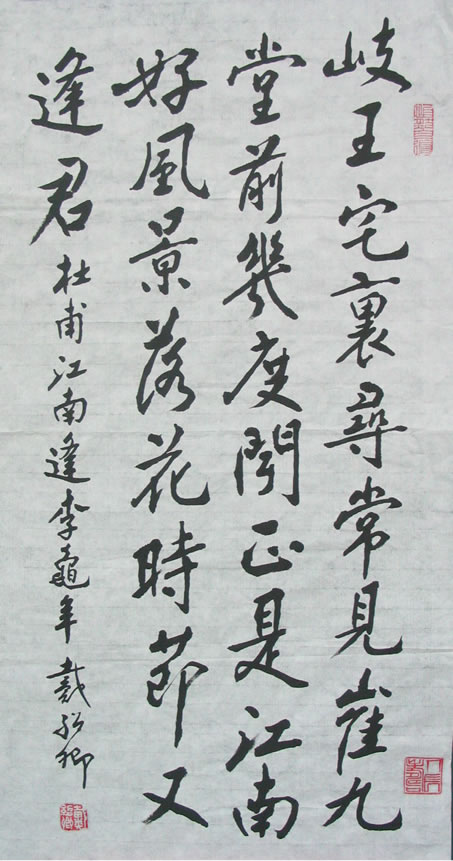 岐王宅裏尋常見崔九
堂前幾度聞正是江南
好風景落花時節又
逢君
杜甫江南逢李龜年